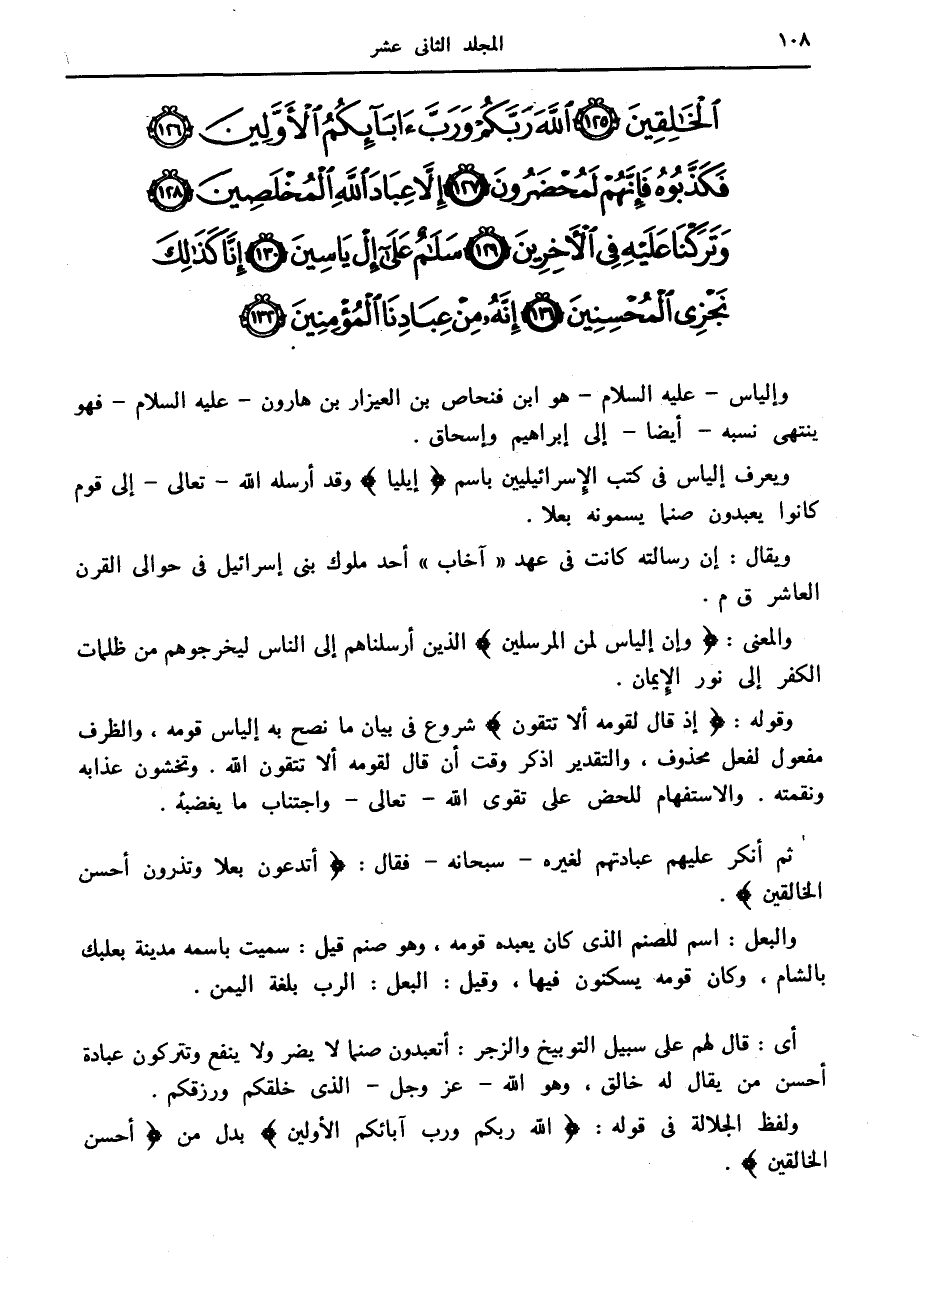 ١٠٨ المجلد الثانى عشر
ٱلْخَٰلِقِينَ ١٢٥ ٱللَّهَ رَبَّكُمْ وَرَبَّ ءَابَآئِكُمُ ٱلْأَوَّلِينَ ١٢٦
فَكَذَّبُوهُ فَإِنَّهُمْ لَمُحْضَرُونَ ١٢٧ إِلَّا عِبَادَ ٱللَّهِ ٱلْمُخْلَصِينَ ١٢٨
وَتَرَكْنَا عَلَيْهِ فِى ٱلْآخِرِينَ ١٢٩ سَلَٰمٌ عَلَىٰٓ إِلْ يَاسِينَ ١٣٠ إِنَّا كَذَٰلِكَ
نَجْزِى ٱلْمُحْسِنِينَ ١٣١ إِنَّهُۥ مِنْ عِبَادِنَا ٱلْمُؤْمِنِينَ ١٣٢
وإلياس – عليه السلام – هو ابن فنحاص بن العيزار بن هارون – عليه السلام – فهو
ينتهى نسبه – أيضا – إلى إبراهيم وإسحاق .
ويعرف إلياس فى كتب الإسرائيليين باسم ﴿ إيليا ﴾ وقد أرسله الله – تعالى – إلى قوم
كانوا يعبدون صنما يسمونه بعلا .
ويقال : إن رسالته كانت فى عهد « آخاب » أحد ملوك بنى إسرائيل فى حوالى القرن
العاشر ق م .
والمعنى : ﴿ وإن إلياس لمن المرسلين ﴾ الذين أرسلناهم إلى الناس ليخرجوهم من ظلمات
الكفر إلى نور الإيمان .
وقوله : ﴿ إذ قال لقومه ألا تتقون ﴾ شروع فى بيان ما نصح به إلياس قومه ، والظرف
مفعول لفعل محذوف ، والتقدير اذكر وقت أن قال لقومه ألا تتقون الله . وتخشون عذابه
ونقمته . والاستفهام للحض على تقوى الله – تعالى – واجتناب ما يغضبه .
ثم أنكر عليهم عبادتهم لغيره – سبحانه – فقال : ﴿ أتدعون بعلا وتذرون أحسن
الخالقين ﴾ .
والبعل : اسم للصنم الذى كان يعبده قومه ، وهو صنم قيل : سميت باسمه مدينة بعلبك
بالشام ، وكان قومه يسكنون فيها ، وقيل : البعل : الرب بلغة اليمن .
أى : قال لهم على سبيل التوبيخ والزجر : أتعبدون صنما لا يضر ولا ينفع وتتركون عبادة
أحسن من يقال له خالق ، وهو الله – عز وجل – الذى خلقكم ورزقكم .
ولفظ الجلالة فى قوله : ﴿ الله ربكم ورب آبائكم الأولين ﴾ بدل من ﴿ أحسن
الخالقين ﴾ .